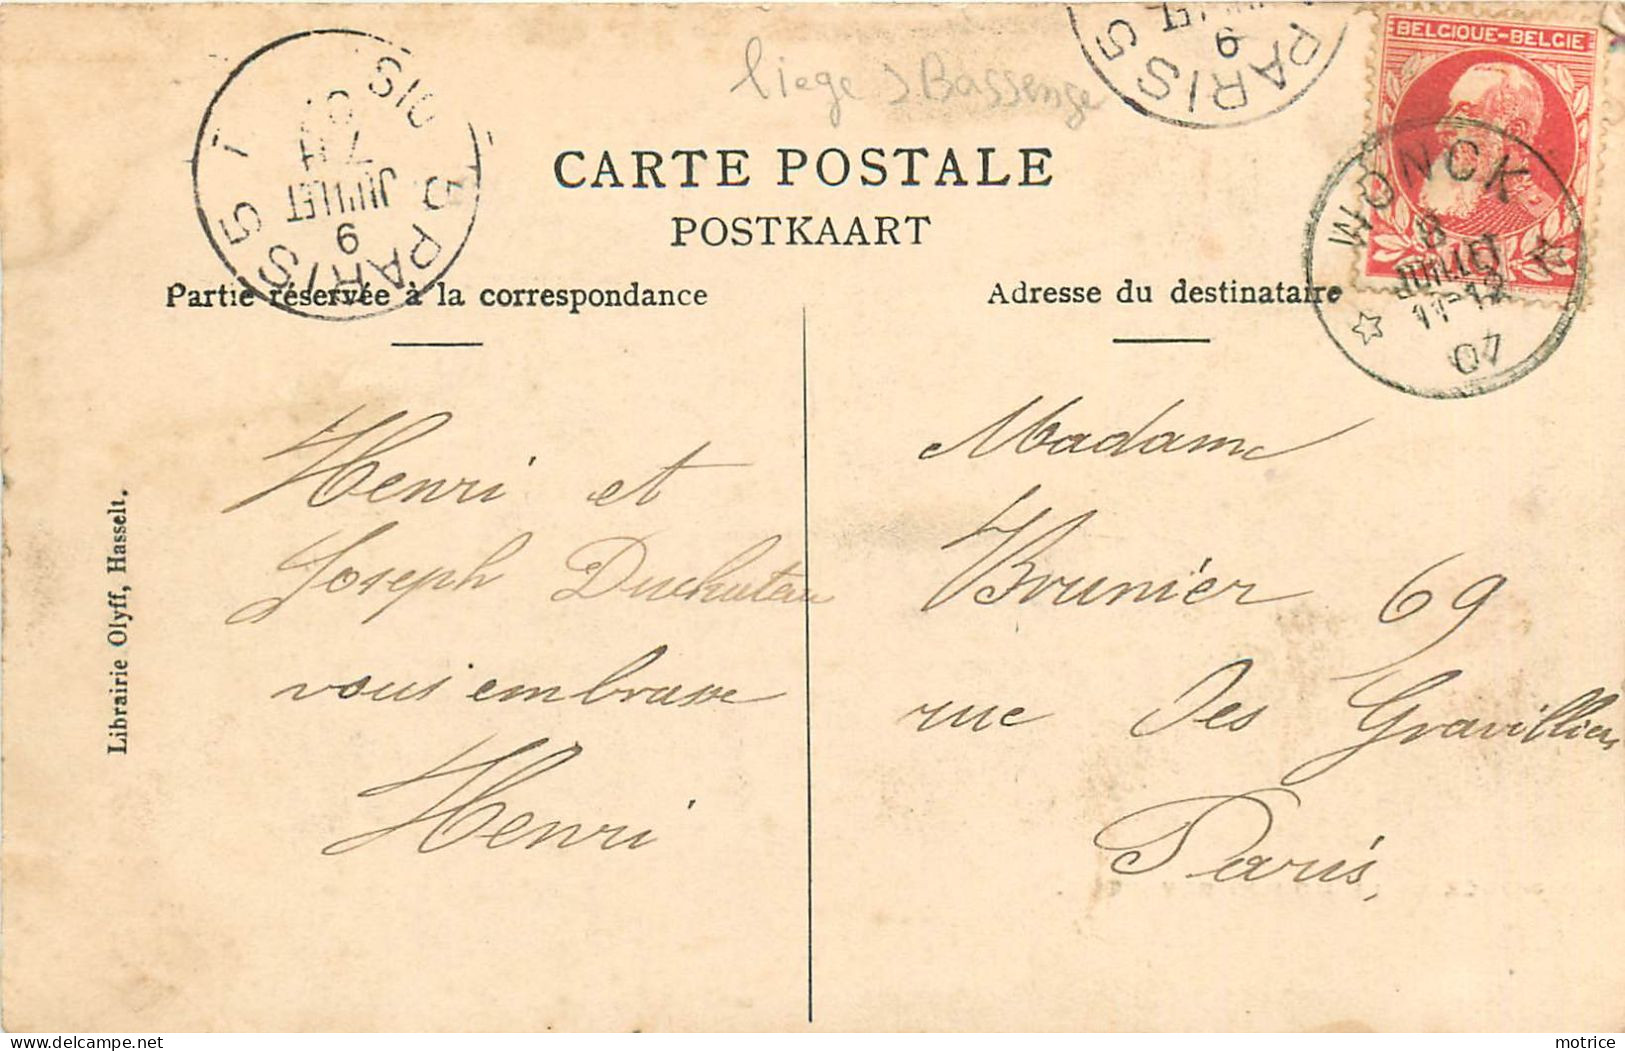 liege Bassenge
BELGIQUE-BELGIE
CARTE POSTALE
POSTKAART
PARIS 5
9
JUILLET
PARIS 5
9
WONCK
8
JUILLET
11-12
07
Partie réservée à la correspondance
Henri et
Joseph Duchateau
vous embrasse
Henri
Adresse du destinataire
Madame
Brunier 69
rue Des Gravilliers
Paris,
Librairie Olyff, Hasselt.
motrice